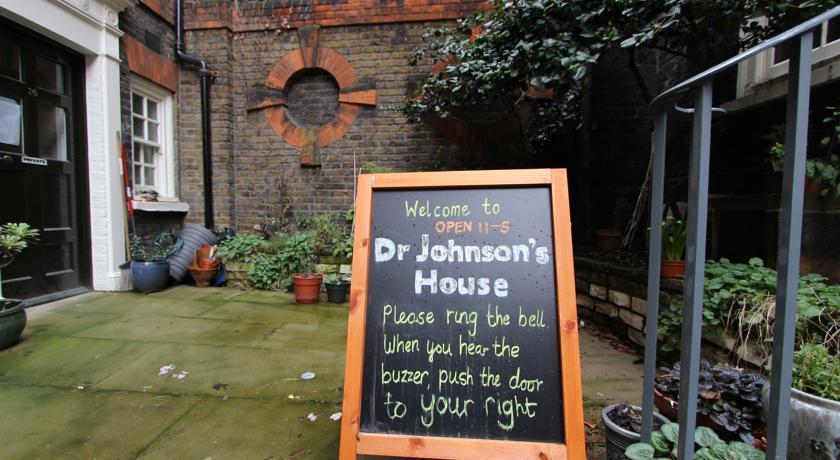 16
PRIVATE
Welcome to
OPEN 11-5
Dr Johnson's
House
Please ring the bell.
When you hear the
buzzer, push the door
to your right